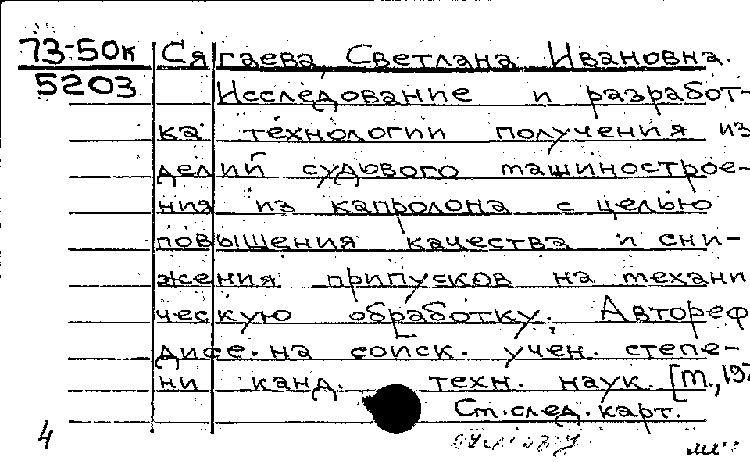 73-50к Сягаева, Светлана Ивановна.
5203 Исследование и разработ-
ка технологии получения из
делий судового машинострое-
ния из капролона с целью
повышения качества и сни-
жения припусков на механи
ческую обработку. Автореф
дисс. на соиск. учен. степе-
ни канд. техн. наук. [М., 197
См. след. карт.
4